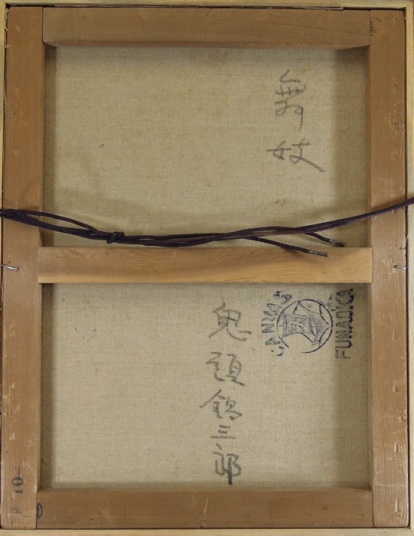 舞妓
鬼頭鍋三郎
CANVAS
FUNAOKA
10